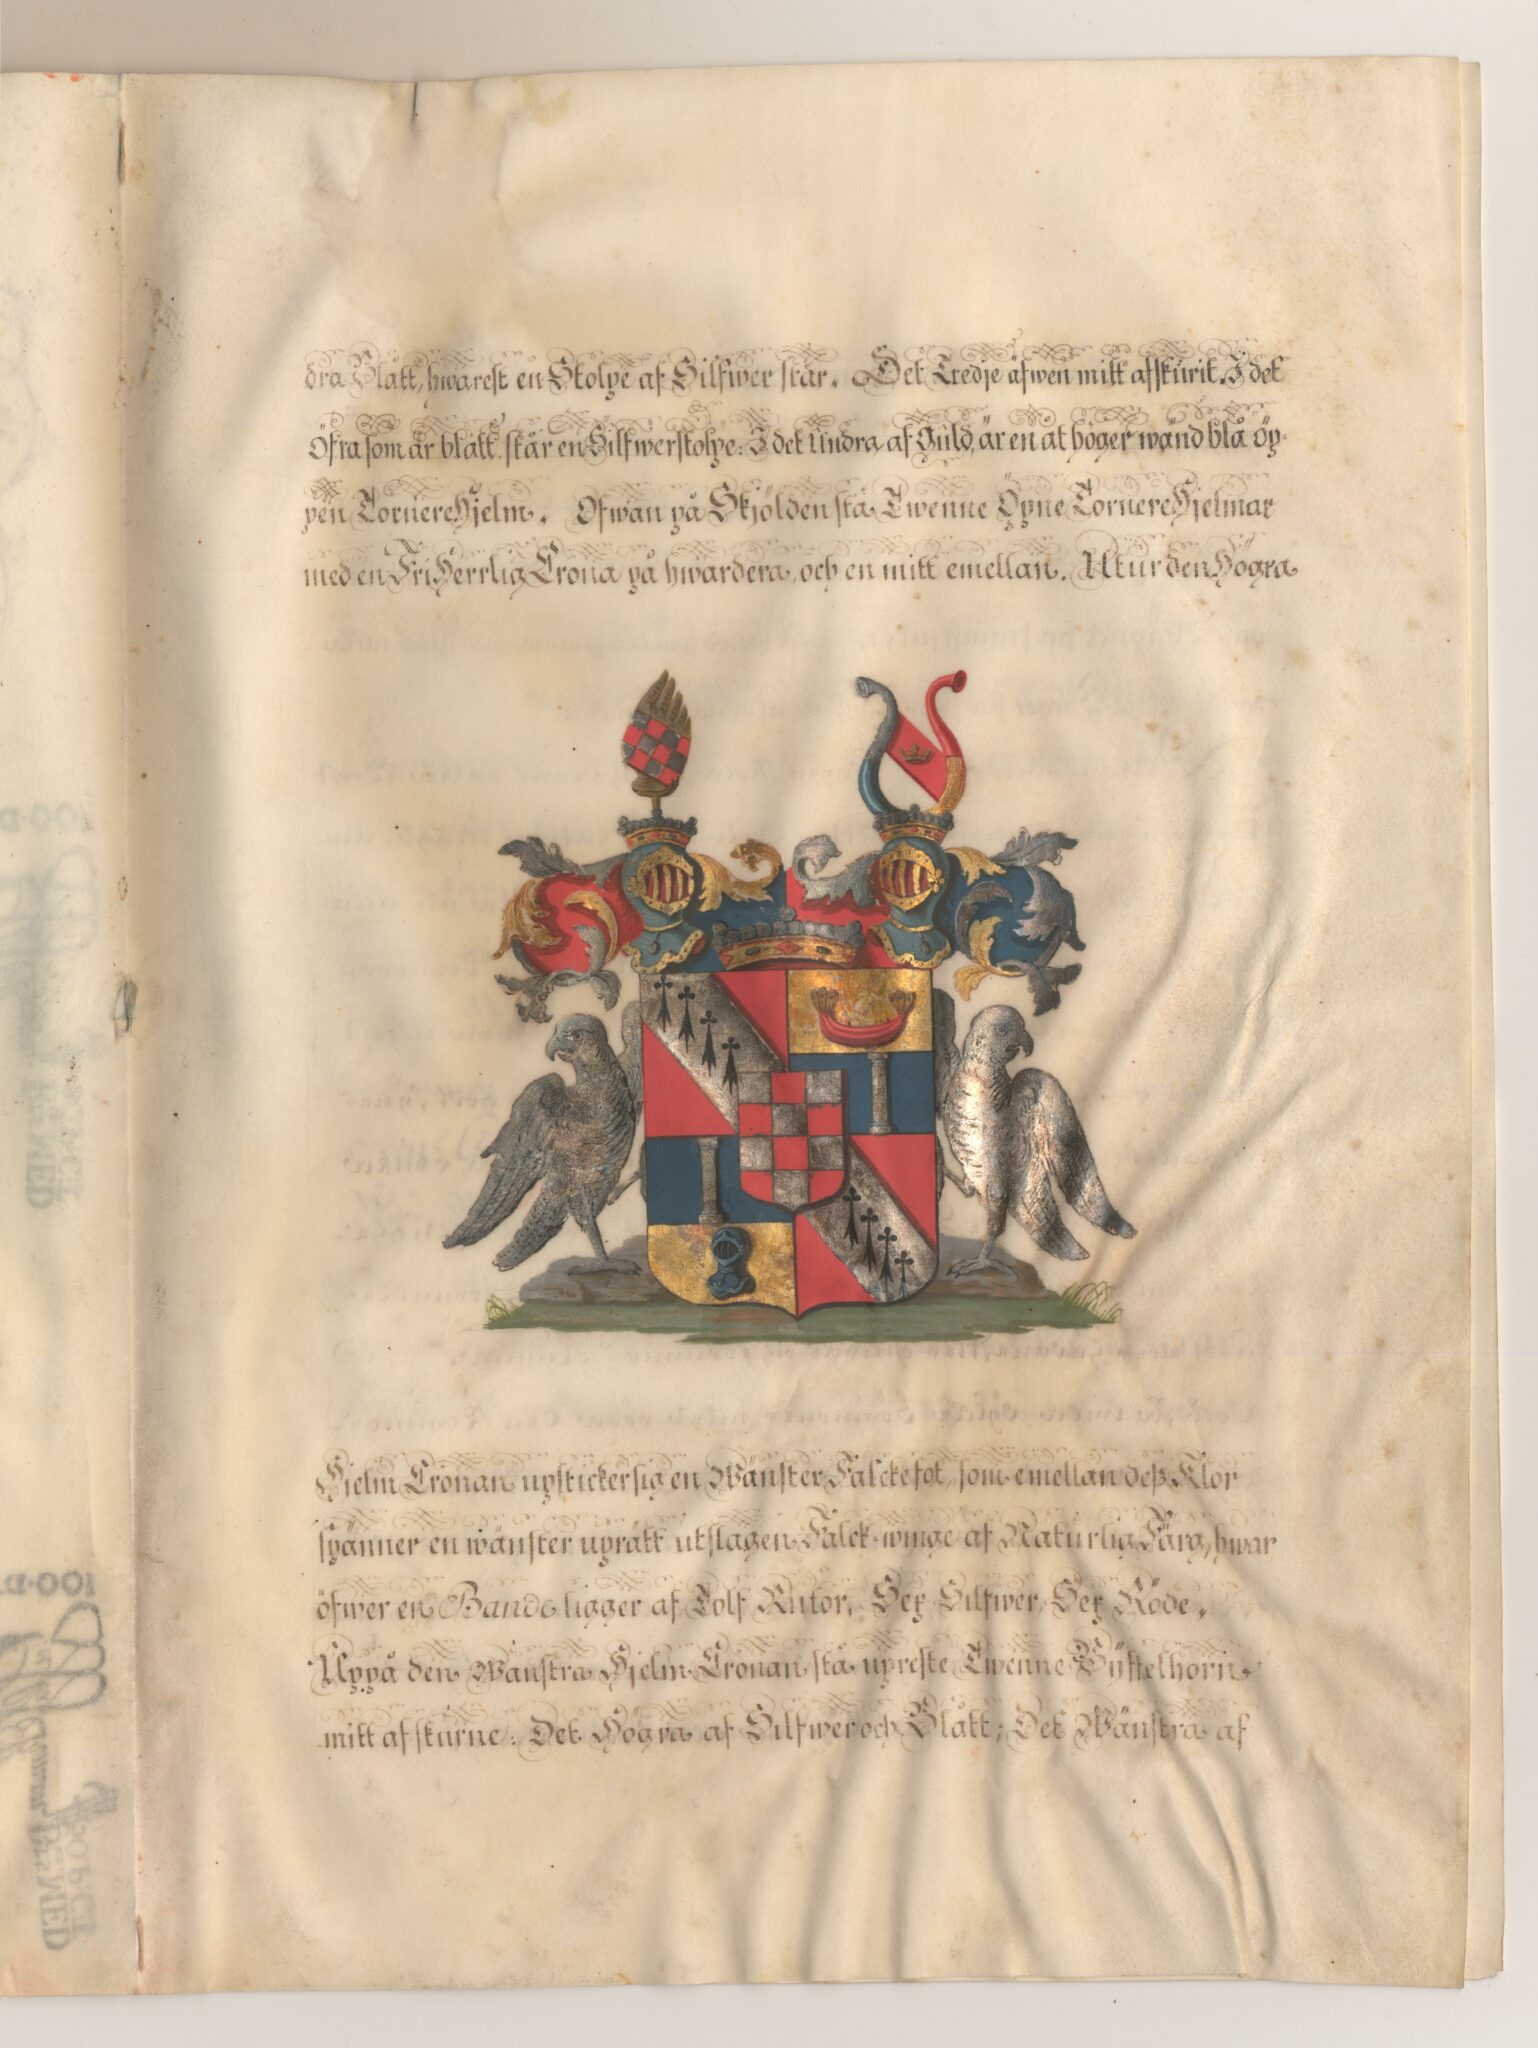 dra Blått, hwarest en Stolpe af Silfwer står. Det Tredje äfwen mitt afskurit. I det
Öfra som är blått står en Silfwerstolpe: I det Undra, af Guld, är en at höger wänd blå öp-
pen TornereHjelm. Ofwan på Skjölden stå Twenne Öpne TornereHjelmar
med en FriHerrlig Crona på hwardera, och en mitt emellan. Utur den Högra
Hjelm Cronan upstickersig en Wänster Falckefot, som emellan deß Klor
spänner en wänster uprätt utslagen Falck-winge af Naturlig Färg, hwar
öfwer en Bande ligger af Tolf Rutor, Sex Silfwer, Sex Röde.
Uppå den Wänstra Hjelm Cronan stå upreste Twenne Byffelhorn
mitt afskurne: Det Högra af Silfwer och Blått; Det Wänstra af